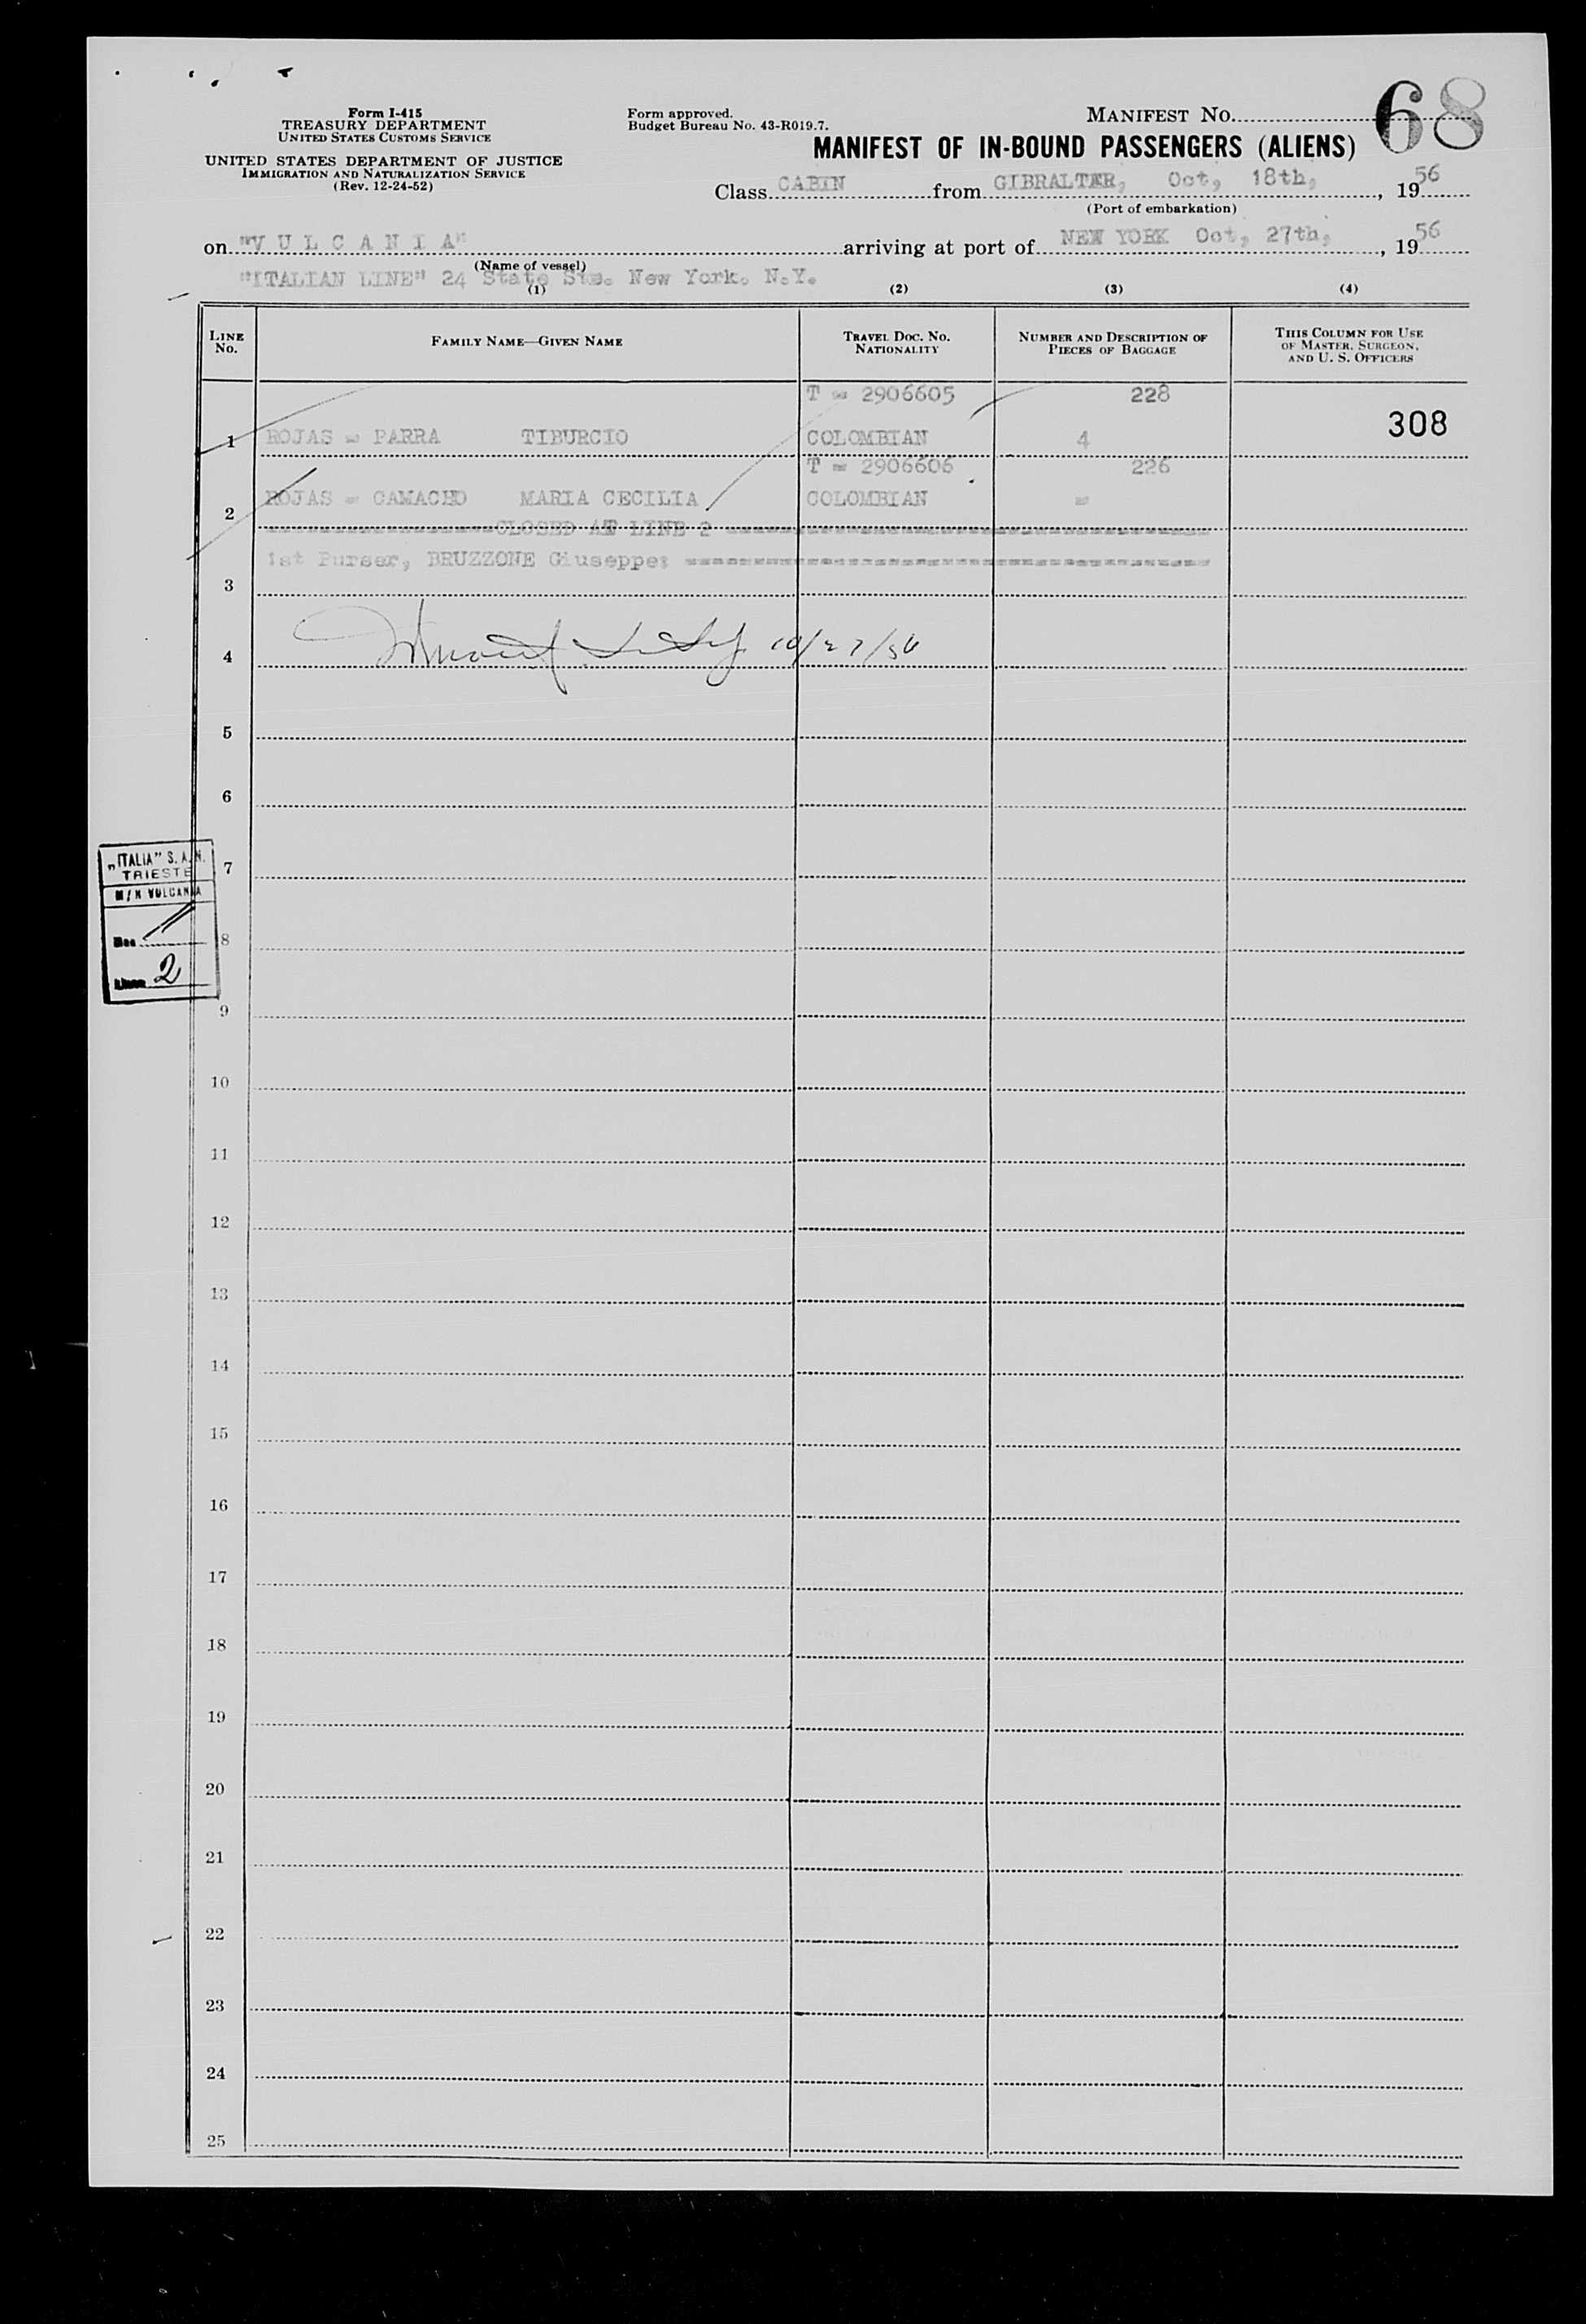 Form I-415
TREASURY DEPARTMENT
UNITED STATES CUSTOMS SERVICE
UNITED STATES DEPARTMENT OF JUSTICE
IMMIGRATION AND NATURALIZATION SERVICE
(Rev. 12-24-52)
Form approved.
Budget Bureau No. 43-R019.7.
MANIFEST NO. 68
MANIFEST OF IN-BOUND PASSENGERS (ALIENS)
Class CABIN from GIBRALTER, Oct, 18th, , 19 56
(Port of embarkation)
on "V U L C A N I A" arriving at port of NEW YORK Oct, 27th, , 19 56
(Name of vessel)
"ITALIAN LINE" 24 State Sts. New York. N.Y.
(1) (2) (3) (4)
LINE No. FAMILY NAME—GIVEN NAME TRAVEL DOC. NO. NATIONALITY NUMBER AND DESCRIPTION OF PIECES OF BAGGAGE THIS COLUMN FOR USE OF MASTER, SURGEON, AND U. S. OFFICERS
T - 2906605 228
1 ROJAS - PARRA TIBURCIO COLOMBIAN 4 308
T - 2906606 226
2 ROJAS - CAMACHO MARIA CECILIA COLOMBIAN -
CLOSED AT LINE 2
1st Purser, BRUZZONE Giuseppe:
3
4 10/27/56
5
6
„ITALIA" S. A. N.
TRIESTE
M/N VULCANIA
2
7
8
9
10
11
12
13
14
15
16
17
18
19
20
21
22
23
24
25